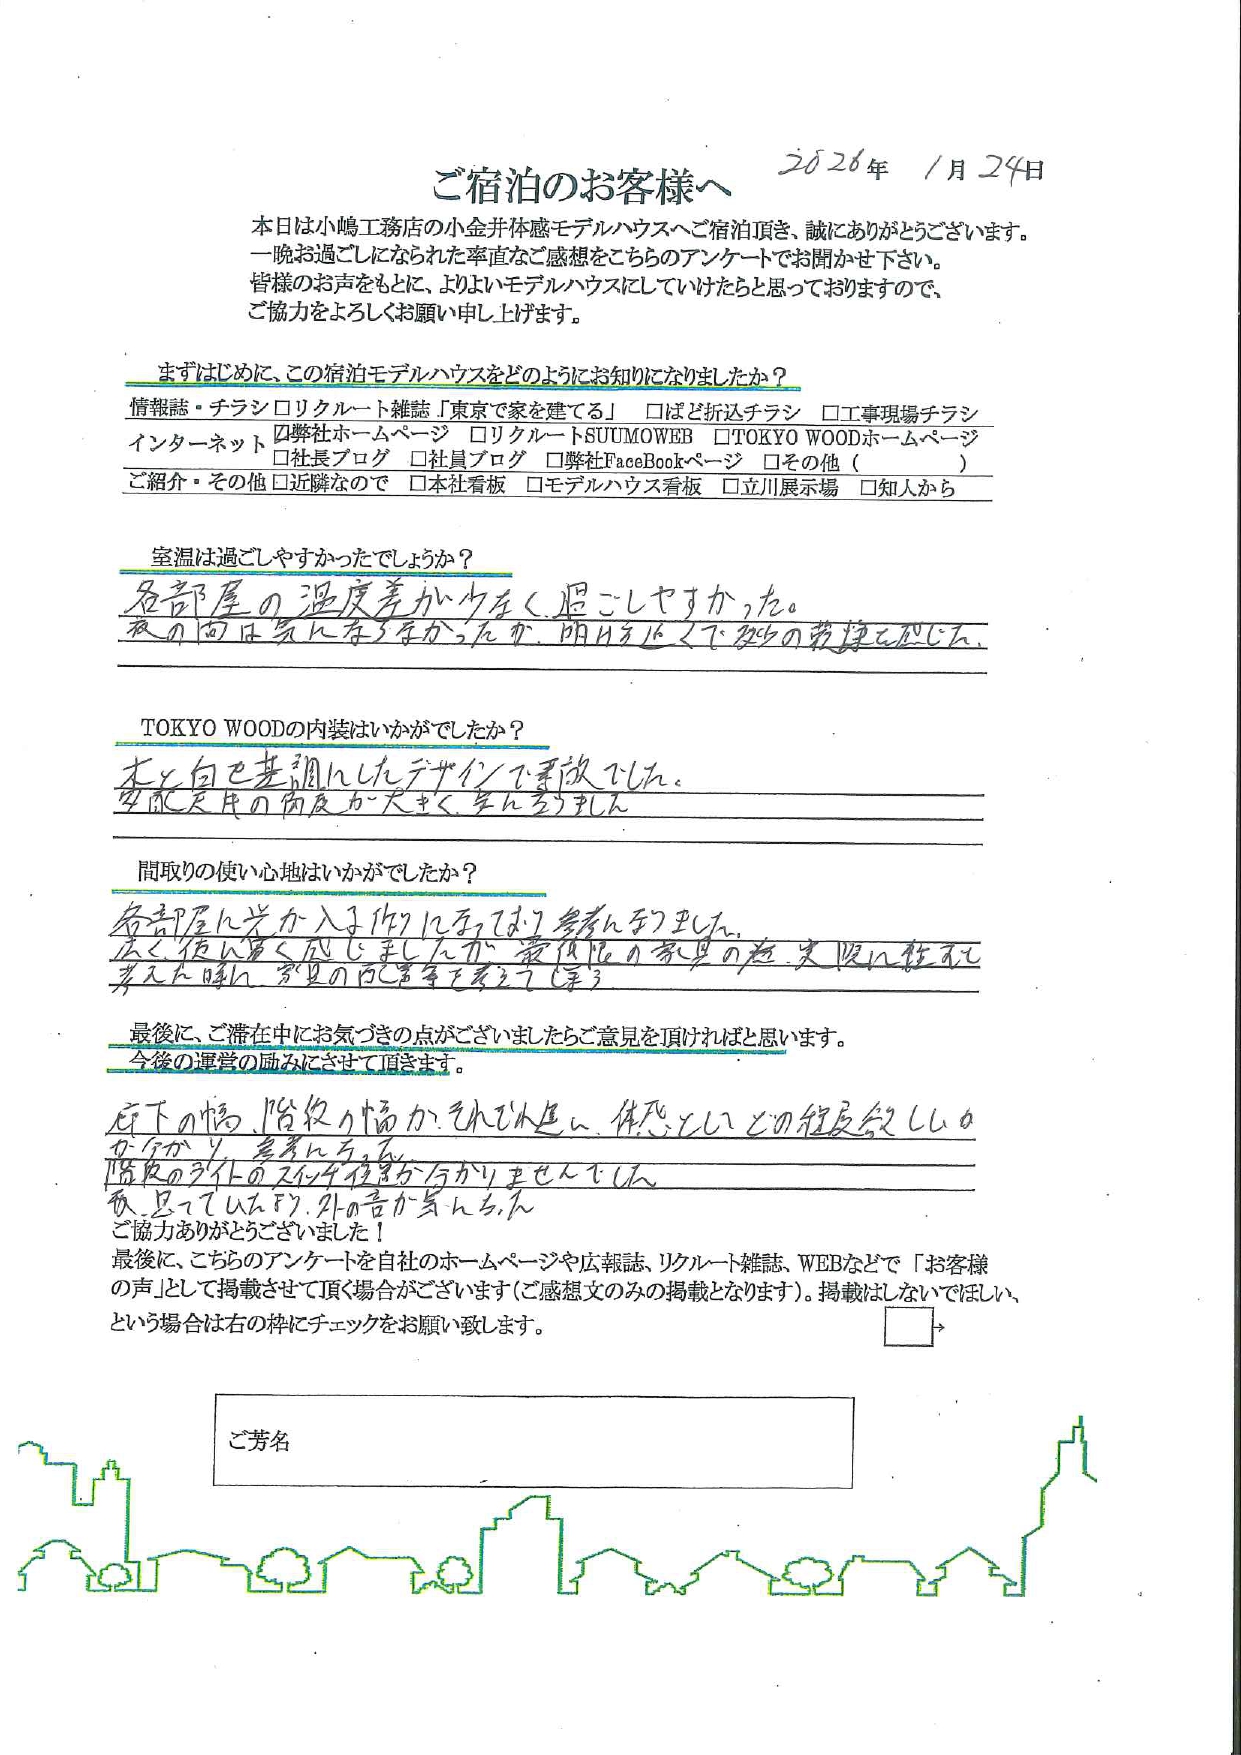 2026年 1月24日
ご宿泊のお客様へ
本日は小嶋工務店の小金井体感モデルハウスへご宿泊頂き、誠にありがとうございます。
一晩お過ごしになられた率直なご感想をこちらのアンケートでお聞かせ下さい。
皆様のお声をもとに、よりよいモデルハウスにしていけたらと思っておりますので、
ご協力をよろしくお願い申し上げます。
まずはじめに、この宿泊モデルハウスをどのようにお知りになりましたか？
情報誌・チラシ □リクルート雑誌「東京で家を建てる」 □ぱど折込チラシ □工事現場チラシ
インターネット ☑弊社ホームページ □リクルートSUUMOWEB □TOKYO WOODホームページ
□社長ブログ □社員ブログ □弊社FaceBookページ □その他（ ）
ご紹介・その他 □近隣なので □本社看板 □モデルハウス看板 □立川展示場 □知人から
室温は過ごしやすかったでしょうか？
各部屋の温度差が少なく、過ごしやすかった。
夜の間は気にならなかったが、明け方近くで多少の乾燥を感じた、
TOKYO WOODの内装はいかがでしたか？
木と白を基調にしたデザインで素敵でした。
勾配天井の角度が大きく、気に入りました
間取りの使い心地はいかがでしたか？
各部屋に光が入る作りになっており参考になりました。
広く、使い易く感じましたが、最低限の家具の為、実際に
考えた時に、家具の配置等を考えて
最後に、ご滞在中にお気づきの点がございましたらご意見を頂ければと思います。
今後の運営の励みにさせて頂きます。
廊下の幅、階段の幅が、それぞれ違い、体感としてどの程度欲しいか
が分かり、参考になった
階段のライトのスイッチ位置が分かりませんでした
夜、思っていたより、外の音が気になった
ご協力ありがとうございました！
最後に、こちらのアンケートを自社のホームページや広報誌、リクルート雑誌、WEBなどで「お客様
の声」として掲載させて頂く場合がございます（ご感想文のみの掲載となります）。掲載はしないでほしい、
という場合は右の枠にチェックをお願い致します。
ご芳名